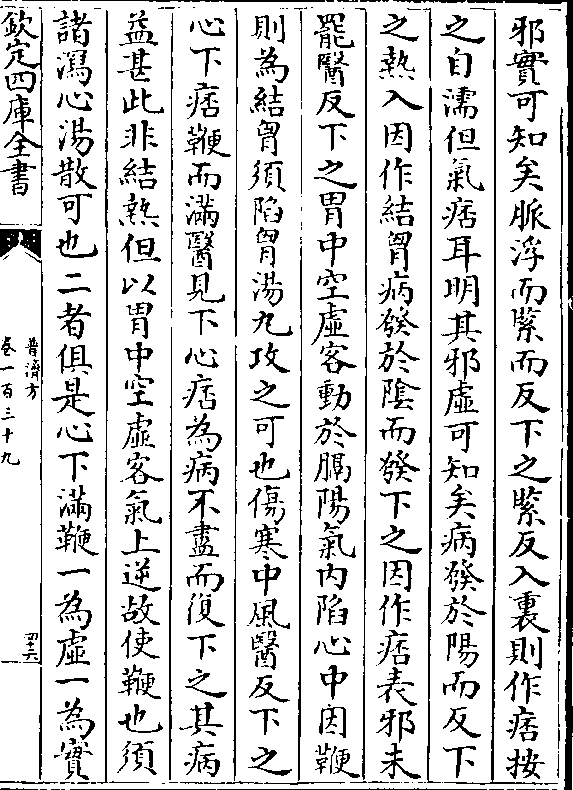 邪實可知矣脈浮而緊而反下之緊反入裏則作痞按
之自濡但氣痞耳明其邪虛可知矣病發於陽而反下
之熱入因作結胷病發於陰而發下之因作痞表邪未
罷醫反下之胃中空虛客動於膈陽氣內陷心中因鞕
則為結胷須陷胷湯丸攻之可也傷寒中風醫反下之
心下痞鞕而滿醫見下心痞為病不盡而復下之其病
益甚此非結熱但以胃中空虛客氣上逆故使鞕也須
諸瀉心湯散可也二者俱是心下滿鞕一為虛一為實
欽定四庫全書
普濟方
卷一百三十九
四六